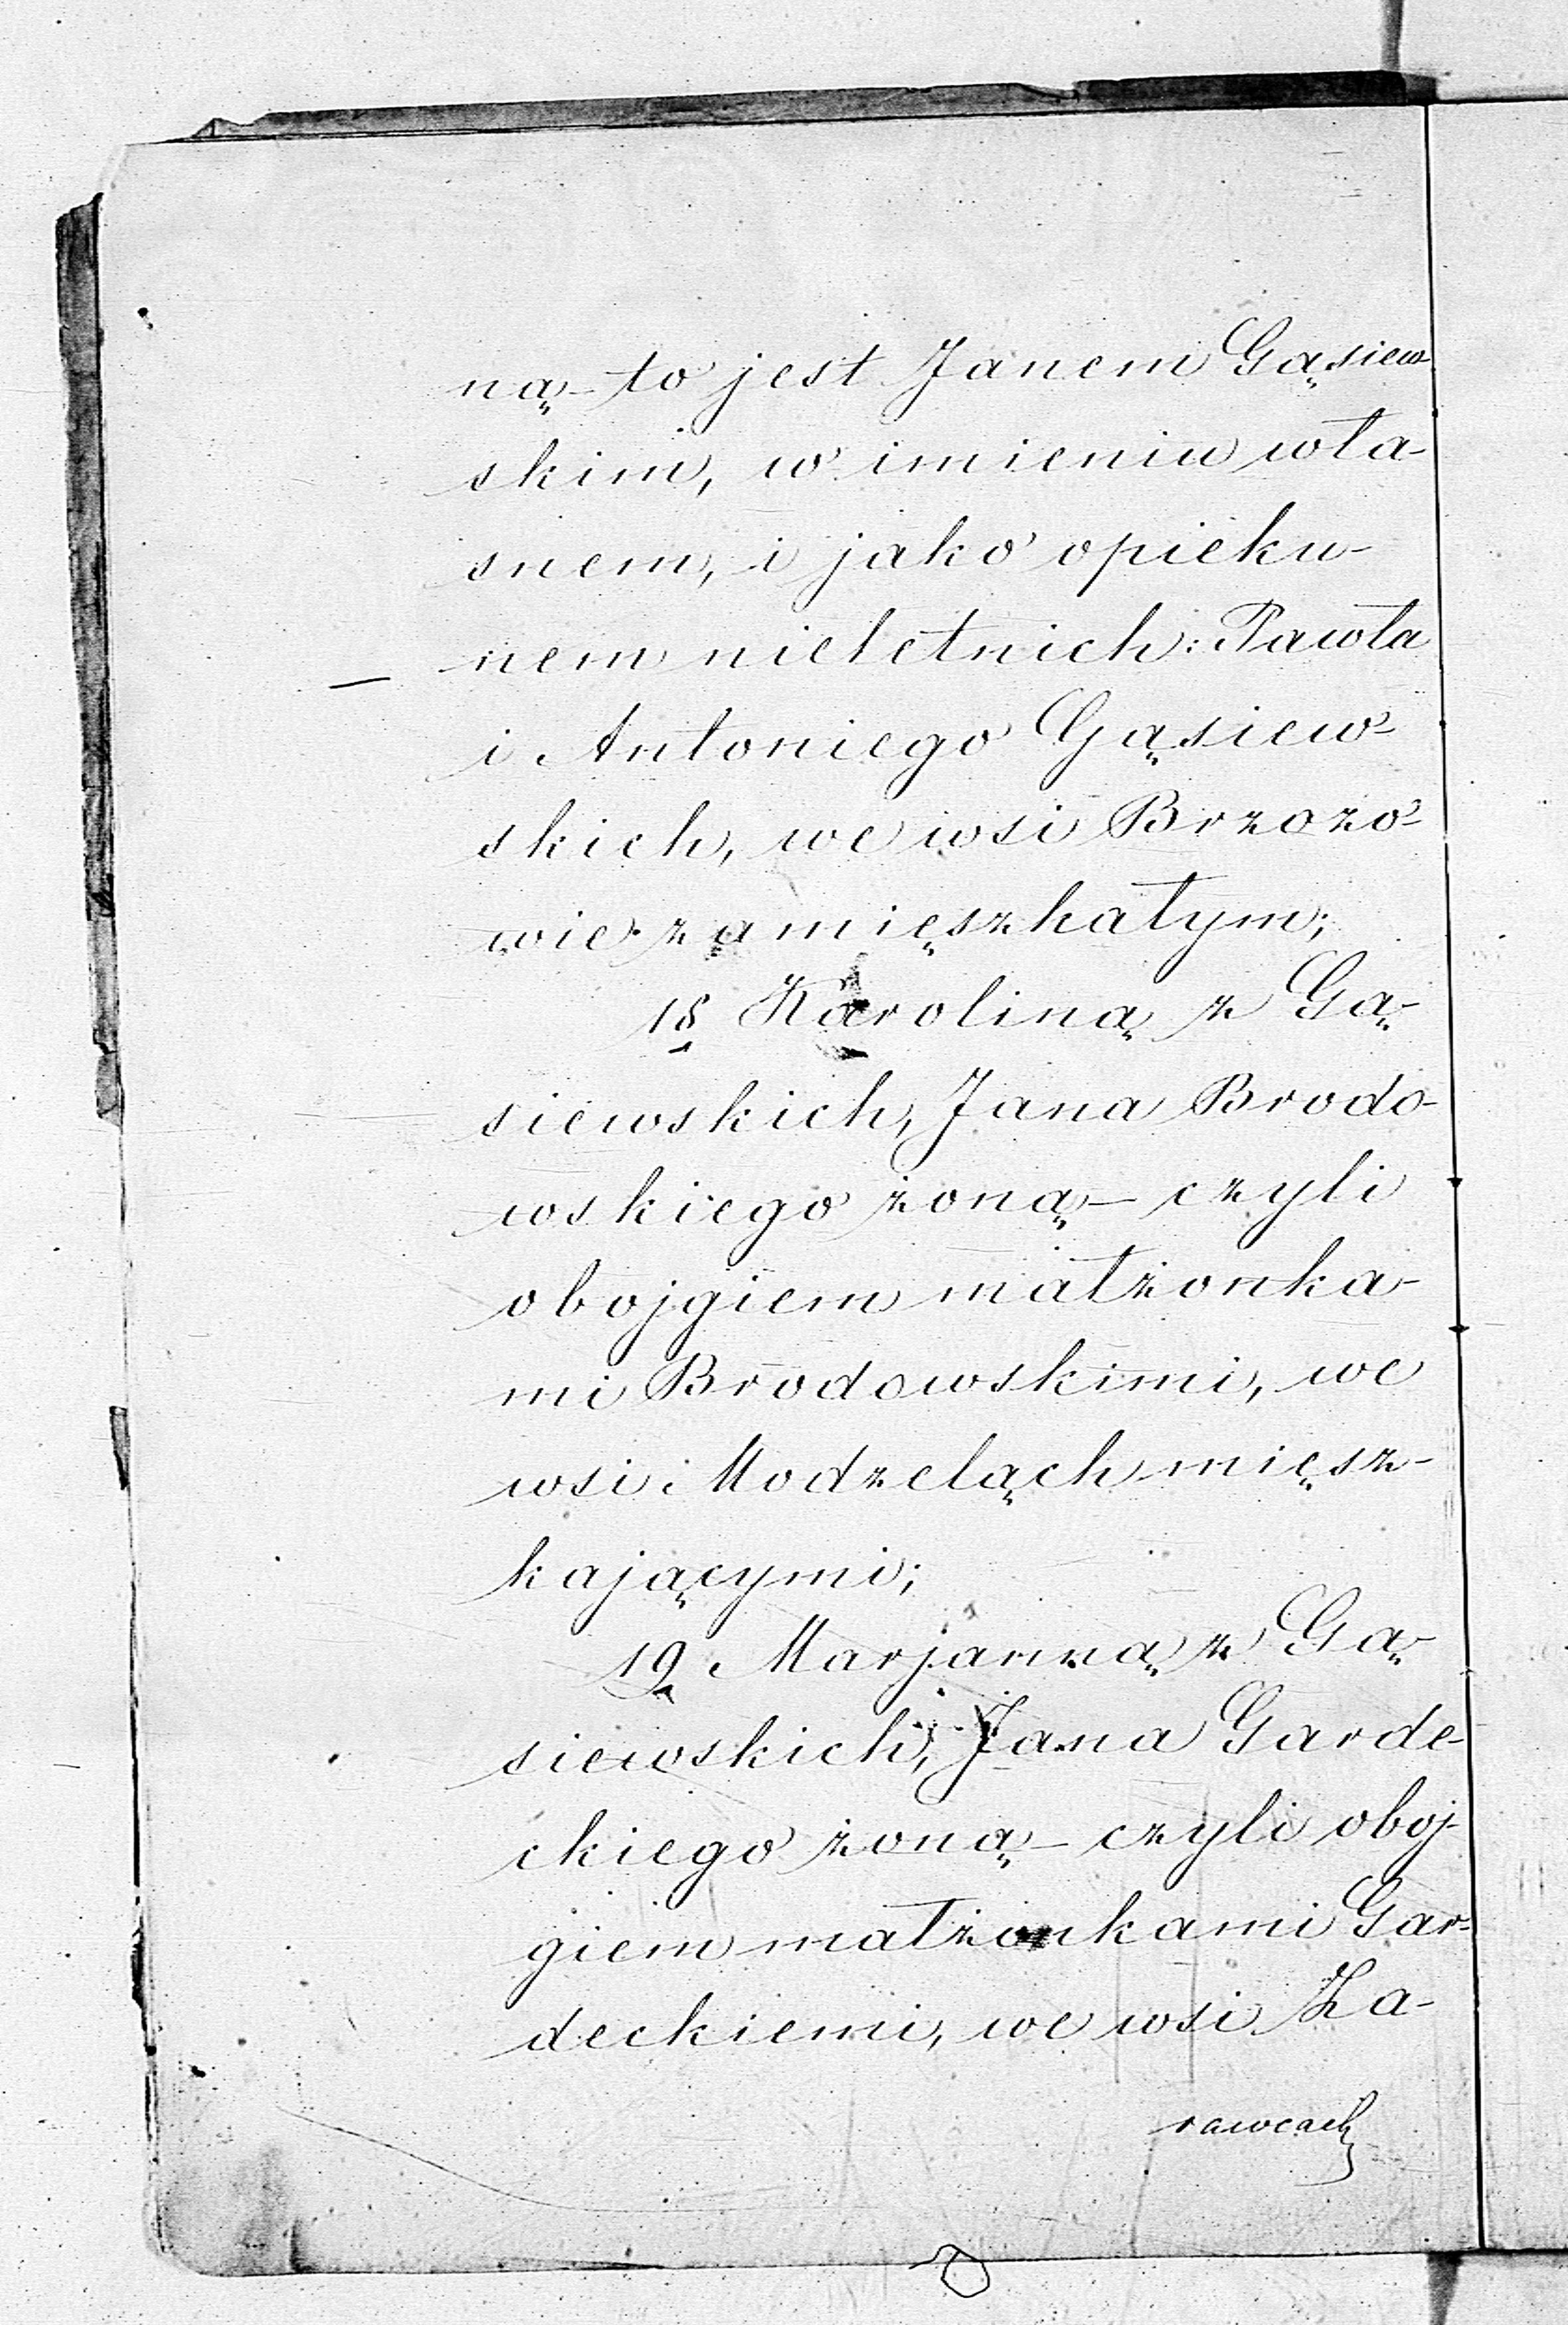 ną – to jest Janem Gąsiew-
skim, w imieniu wła-
snem, i jako opieku-
nem nieletnich: Pawła
i Antoniego Gąsiew-
skich, we wsi Brzozo-
wie zamięszkałym;
18 Karoliną z Gą-
siewskich, Jana Brodo-
wskiego żoną – czyli
obojgiem małżonka-
mi Brodowskimi, we
wsi Modzeląch mięsz-
kającymi;
19 Marjanną z Gą-
siewskich, Jana Garde-
ckiego żoną – czyli oboj-
giem małżonkami Gar-
deckiemi, we wsi Za-
rawcach